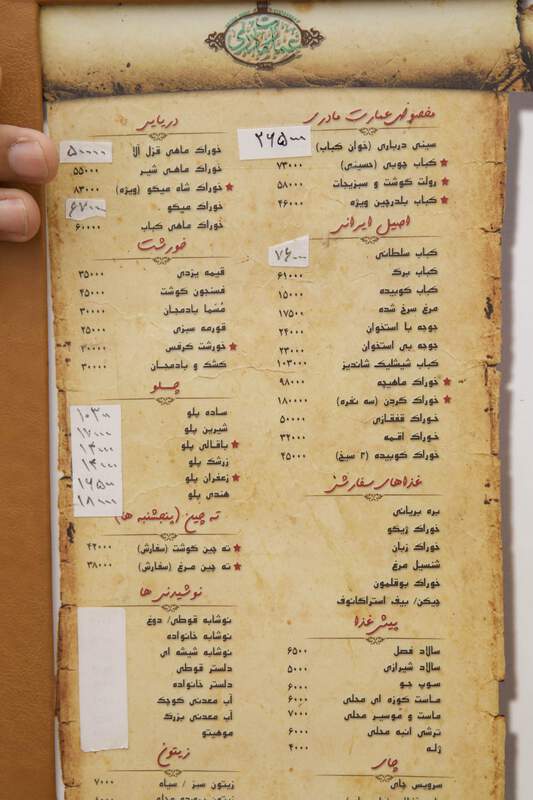 عمارت مادری
مخصوص عمارت مادری
سینی درباری (خوان کباب) ۲۶۵۰۰۰
کباب چوبی (حسینی) ۷۳۰۰۰
رولت گوشت و سبزیجات ۵۸۰۰۰
کباب بلدرچین ویژه ۴۶۰۰۰
اصیل ایرانی
کباب سلطانی ۷۶۰۰۰
کباب برگ ۶۱۰۰۰
کباب کوبیده ۱۵۰۰۰
مرغ سرخ شده ۱۷۵۰۰
جوجه با استخوان ۲۴۰۰۰
جوجه بی استخوان ۲۳۰۰۰
کباب شیشلیک شاندیز ۱۰۳۰۰۰
خوراک ماهیچه ۹۸۰۰۰
خوراک گردن (سه نفره) ۱۸۰۰۰۰
خوراک قفقازی ۵۰۰۰۰
خوراک لقمه ۳۲۰۰۰
خوراک کوبیده (۲ سیخ) ۲۵۰۰۰
غذاهای سفارشی
بره بریانی
خوراک ژیگو
خوراک زبان
شنسیل مرغ
خوراک بوقلمون
چیکن/ بیف استراگانوف
پیش غذا
سالاد فصل ۶۵۰۰
سالاد شیرازی ۵۰۰۰
سوپ جو ۶۰۰۰
ماست کوزه ای محلی ۶۰۰۰
ماست و موسیر محلی ۷۰۰۰
ترشی انبه محلی ۶۰۰۰
ژله ۴۰۰۰
چای
سرویس چای
دریایی
خوراک ماهی قزل آلا ۵۰۰۰۰
خوراک ماهی شیر ۵۵۰۰۰
خوراک شاه میگو (ویژه) ۸۳۰۰۰
خوراک میگو ۶۷۰۰۰
خوراک ماهی کباب ۶۰۰۰۰
خورشت
قیمه یزدی ۳۵۰۰۰
فسنجون گوشت ۴۵۰۰۰
مُسَما بادمجان ۳۰۰۰۰
قورمه سبزی ۲۵۰۰۰
خورشت کرفس ۳۰۰۰۰
کشک و بادمجان ۳۰۰۰۰
چلو
ساده پلو ۱۰۳۰۰
شیرین پلو ۱۷۰۰۰
باقالی پلو ۱۴۰۰۰
زرشک پلو ۱۴۰۰۰
زعفران پلو ۱۶۵۰۰
هندی پلو ۱۸۰۰۰
ته چین (پنجشنبه ها)
ته چین گوشت (سفارش) ۴۲۰۰۰
ته چین مرغ (سفارش) ۳۸۰۰۰
نوشیدنی ها
نوشابه قوطی/ دوغ
نوشابه خانواده
نوشابه شیشه ای
دلستر قوطی
دلستر خانواده
آب معدنی کوچک
آب معدنی بزرگ
موهیتو
زیتون
زیتون سبز / سیاه ۷۰۰۰